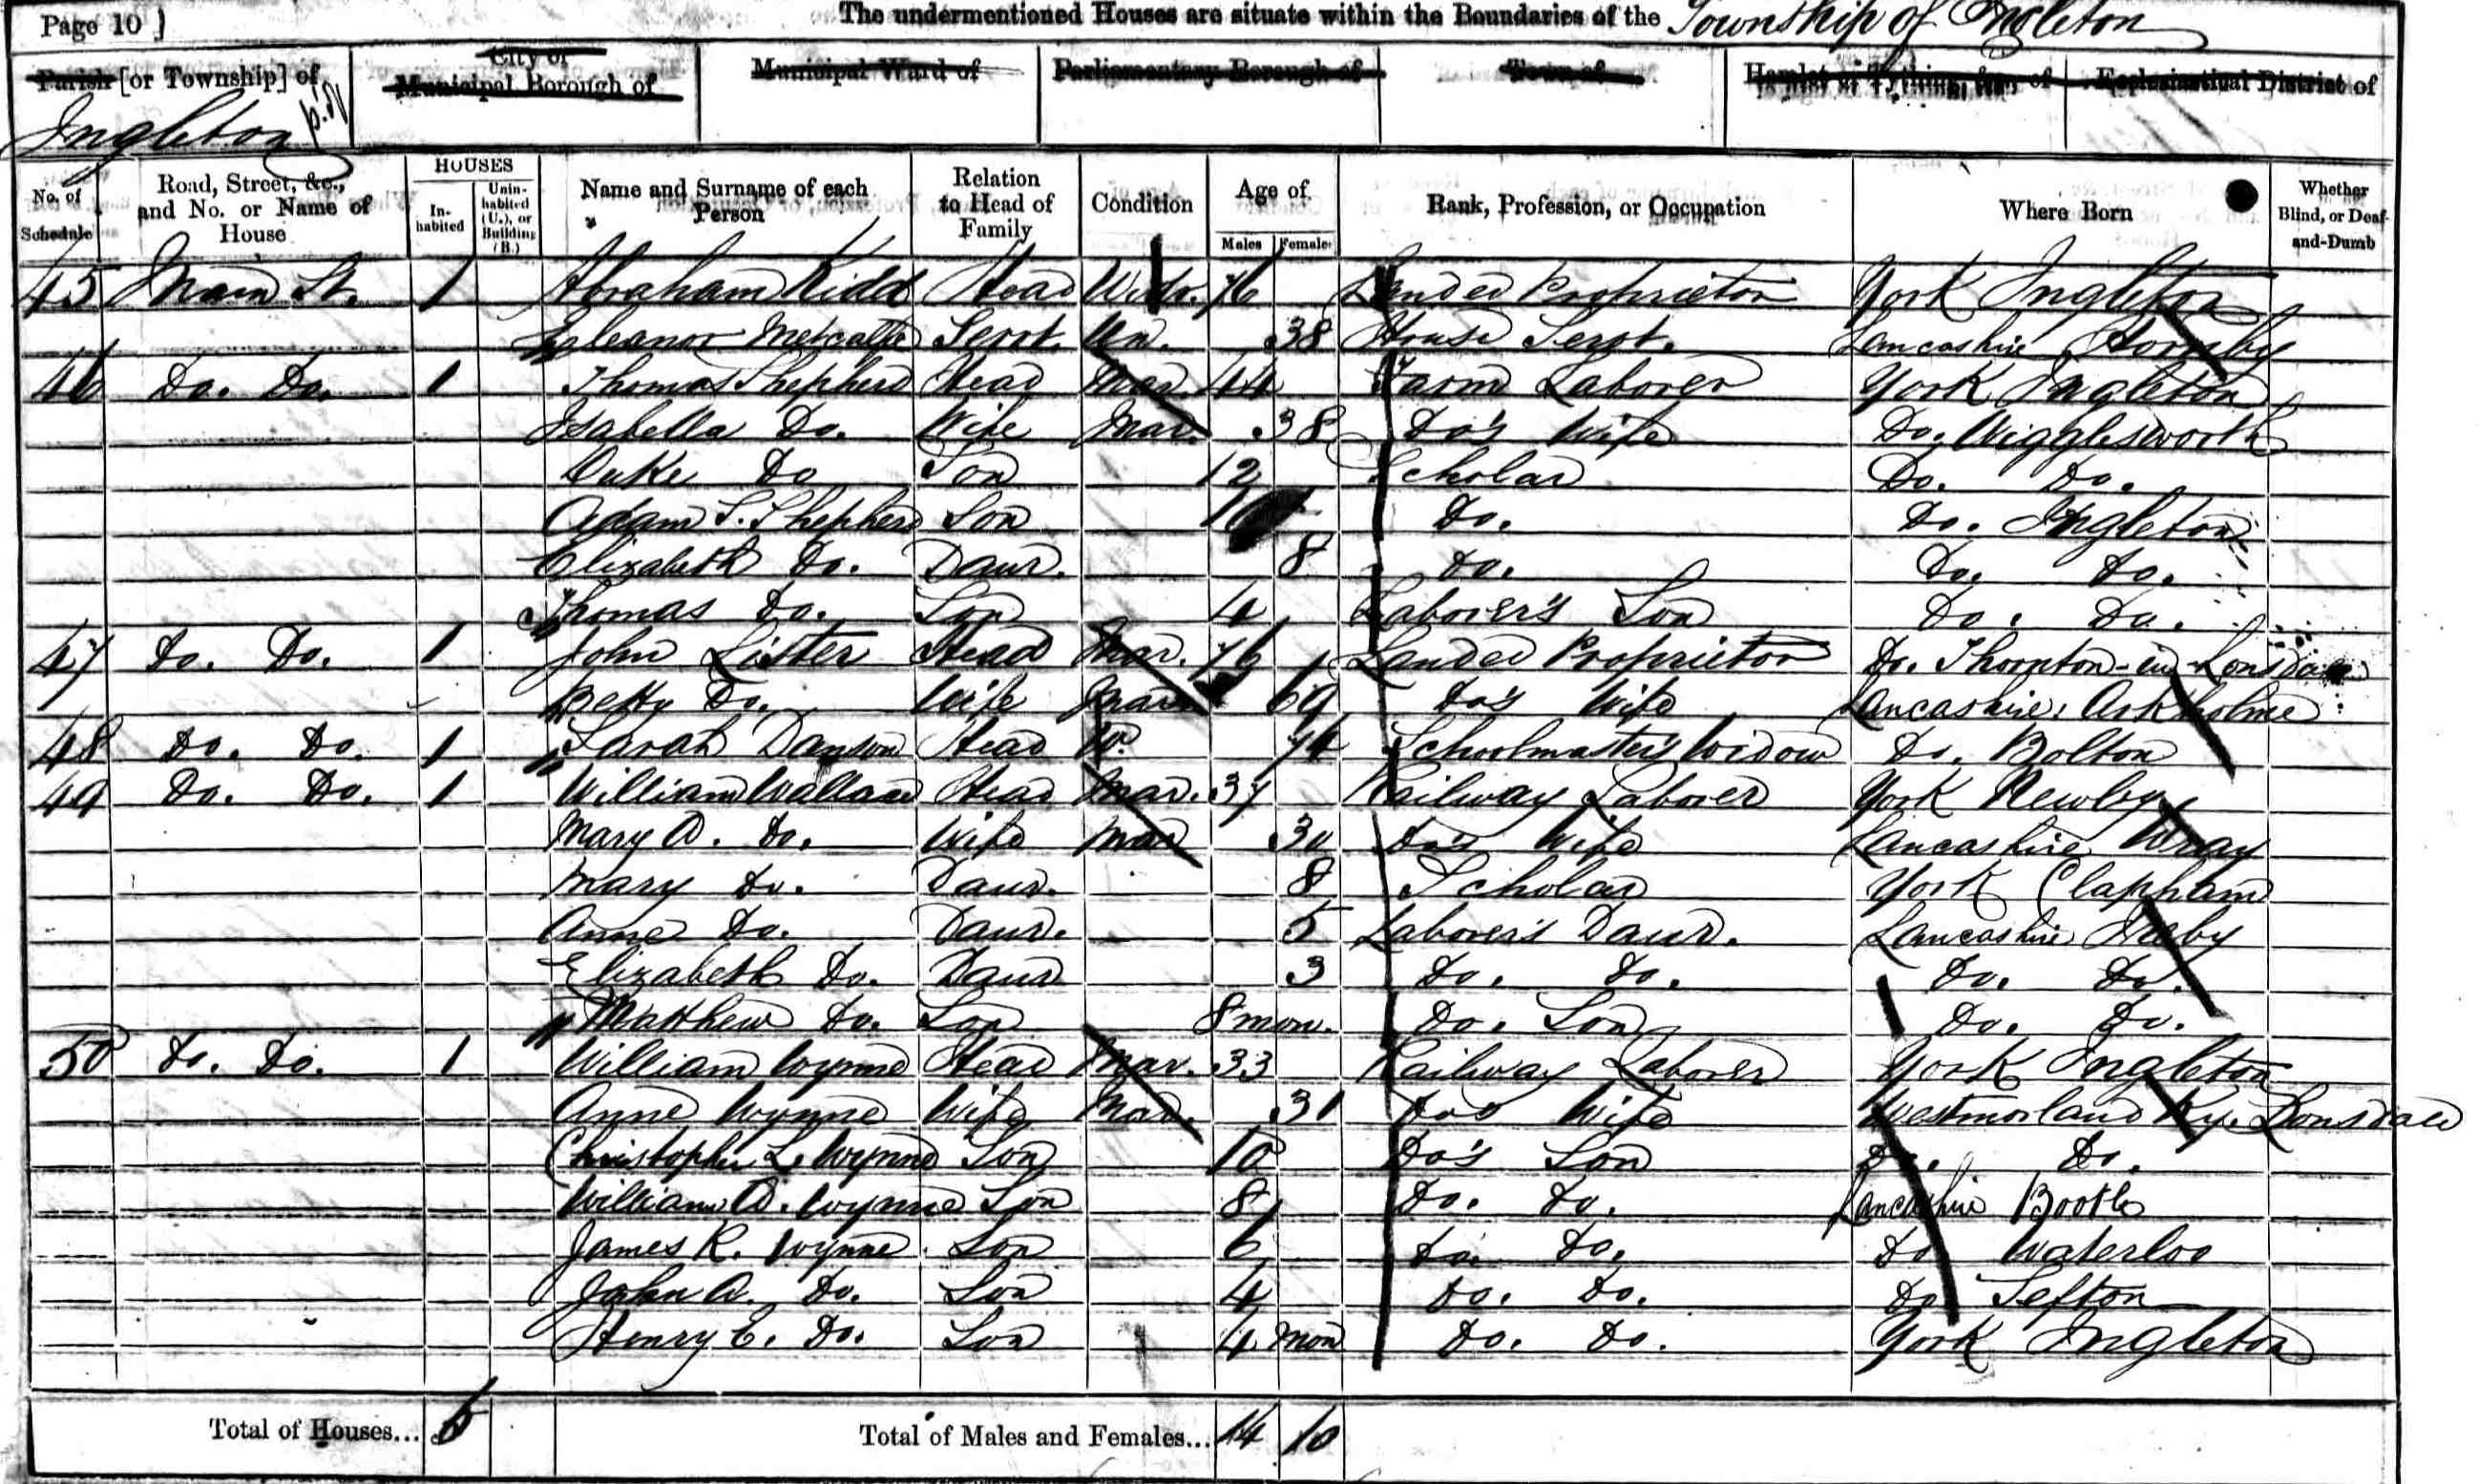 Page 10] The undermentioned Houses are situate within the Boundaries of the Township of Ingleton
Parish [or Township] of City or Municipal Borough of Municipal Ward of Parliamentary Borough of Town of Hamlet or Tything, &c., of Ecclesiastical District of
Ingleton
No. of Schedule Road, Street, &c., and No. or Name of House HOUSES Inhabited Uninhabited (U.), or Building (B.) Name and Surname of each Person Relation to Head of Family Condition Age of Males Females Rank, Profession, or Occupation Where Born Whether Blind, or Deaf-and-Dumb
45 Main St. 1 Abraham Kidd Head Widr. 76 Landed Proprietor York Ingleton
Eleanor Metcalfe Servt. Un. 38 House Servt. Lancashire Hornby
46 Do. Do. 1 Thomas Shepherd Head Mar. 44 Farm Laborer York Ingleton
Isabella Do. Wife Mar. 38 Do's Wife Do. Wigglesworth
Duke Do Son 12 Scholar Do. Do.
Adam S. Shepherd Son Do. Do. Ingleton
Elizabeth Do. Daur. 8 Do. Do. Do.
Thomas Do. Son 4 Laborer's Son Do. Do.
47 Do. Do. 1 John Lister Head Mar. 76 Landed Proprietor Do. Thornton-in-Lonsdale
Betty Do. Wife Mar. 69 Do's Wife Lancashire, Arkholme
48 Do. Do. 1 Sarah Danson Head W. 74 Schoolmaster's Widow Do. Bolton
49 Do. Do. 1 William Wallace Head Mar. 37 Railway Laborer York Newby
Mary A. Do. Wife Mar 30 Do's Wife Lancashire Wray
Mary Do. Daur. 8 Scholar York Clapham
Anne Do. Daur. 5 Laborer's Daur. Lancashire
Elizabeth Do. Daur 3 Do. Do. Do. Do.
Matthew Do. Son 8 mon. Do. Son Do. Do.
50 Do. Do. 1 William Wynne Head Mar. 33 Railway Laborer York Ingleton
Anne Wynne Wife Mar. 31 Do's Wife Westmorland Ky. Lonsdale
Christopher L. Wynne Son 10 Do's Son Do. Do.
William A. Wynne Son 8 Do. Do. Lancashire Bootle
James R. Wynne Son 6 Do. Do. Do Waterloo
John A. Do. Son 4 Do. Do. Do Sefton
Henry E. Do. Son 4 Mon Do. Do. York Ingleton
Total of Houses... 6 Total of Males and Females... 14 10